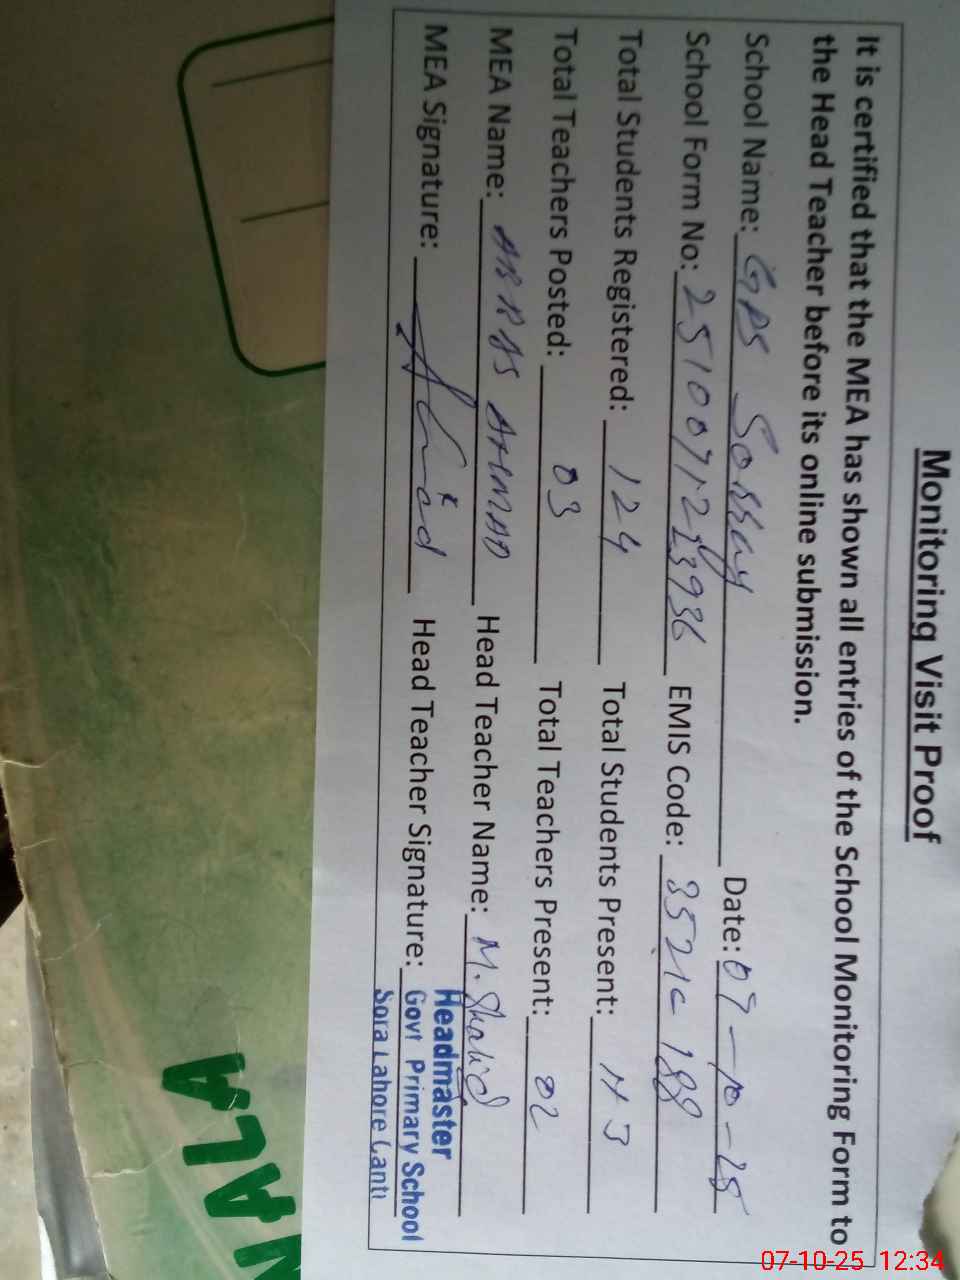 Monitoring Visit Proof
It is certified that the MEA has shown all entries of the School Monitoring Form to
the Head Teacher before its online submission.
School Name: GPS Date: 07-10-25
School Form No: EMIS Code:
Total Students Registered: 124 Total Students Present:
Total Teachers Posted: 03 Total Teachers Present: 02
MEA Name: ABBAS AHMAD Head Teacher Name: M. Shahid
MEA Signature: Head Teacher Signature:
Headmaster
Govt Primary School
Sora Lahore Cantt
ALA
07-10-25 12:34